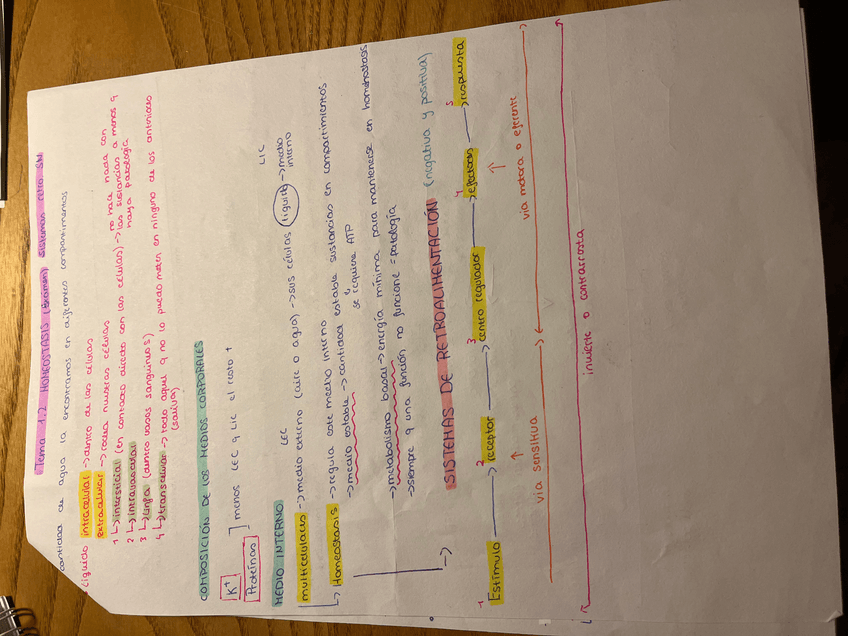 Tema 1.2 HOMEOSTASIS (Examen) Sistemas retro. SNA
cantidad de agua la encontramos en diferentes compartimentos
Líquido intracelular → dentro de las células
extracelular → rodea nuestras células
1 ↳ intersticial (en contacto directo con las células) → las sustancias a menos q
no hace nada con
haya patología
2 ↳ intravascular
3 ↳ linfa (dentro vasos sanguíneos)
4 ↳ transcelular → todo aquel q no lo puedo meter en ninguno de los anteriores
(saliva)
COMPOSICIÓN DE LOS MEDIOS CORPORALES
K+
Proteínas
] menos LEC q LIC el resto ↑
MEDIO INTERNO
LEC
LIC
multicelulares → medio externo (aire o agua) → sus células líquido → medio
interno
↳ Homeostasis → regula este medio interno
→ medio estable → cantidad estable sustancias en compartimientos
↳ se requiere ATP
→ metabolismo basal → energía mínima para mantenerse en homeostasis
→ siempre q una función no funcione = patología
→ SISTEMAS DE RETROALIMENTACIÓN (negativa y positiva)
1 Estímulo → 2 receptor → 3 centro regulador → 4 efectores → 5 respuesta
↑ ↑
vía sensitiva vía motora o eferente
invierte o contrarresta